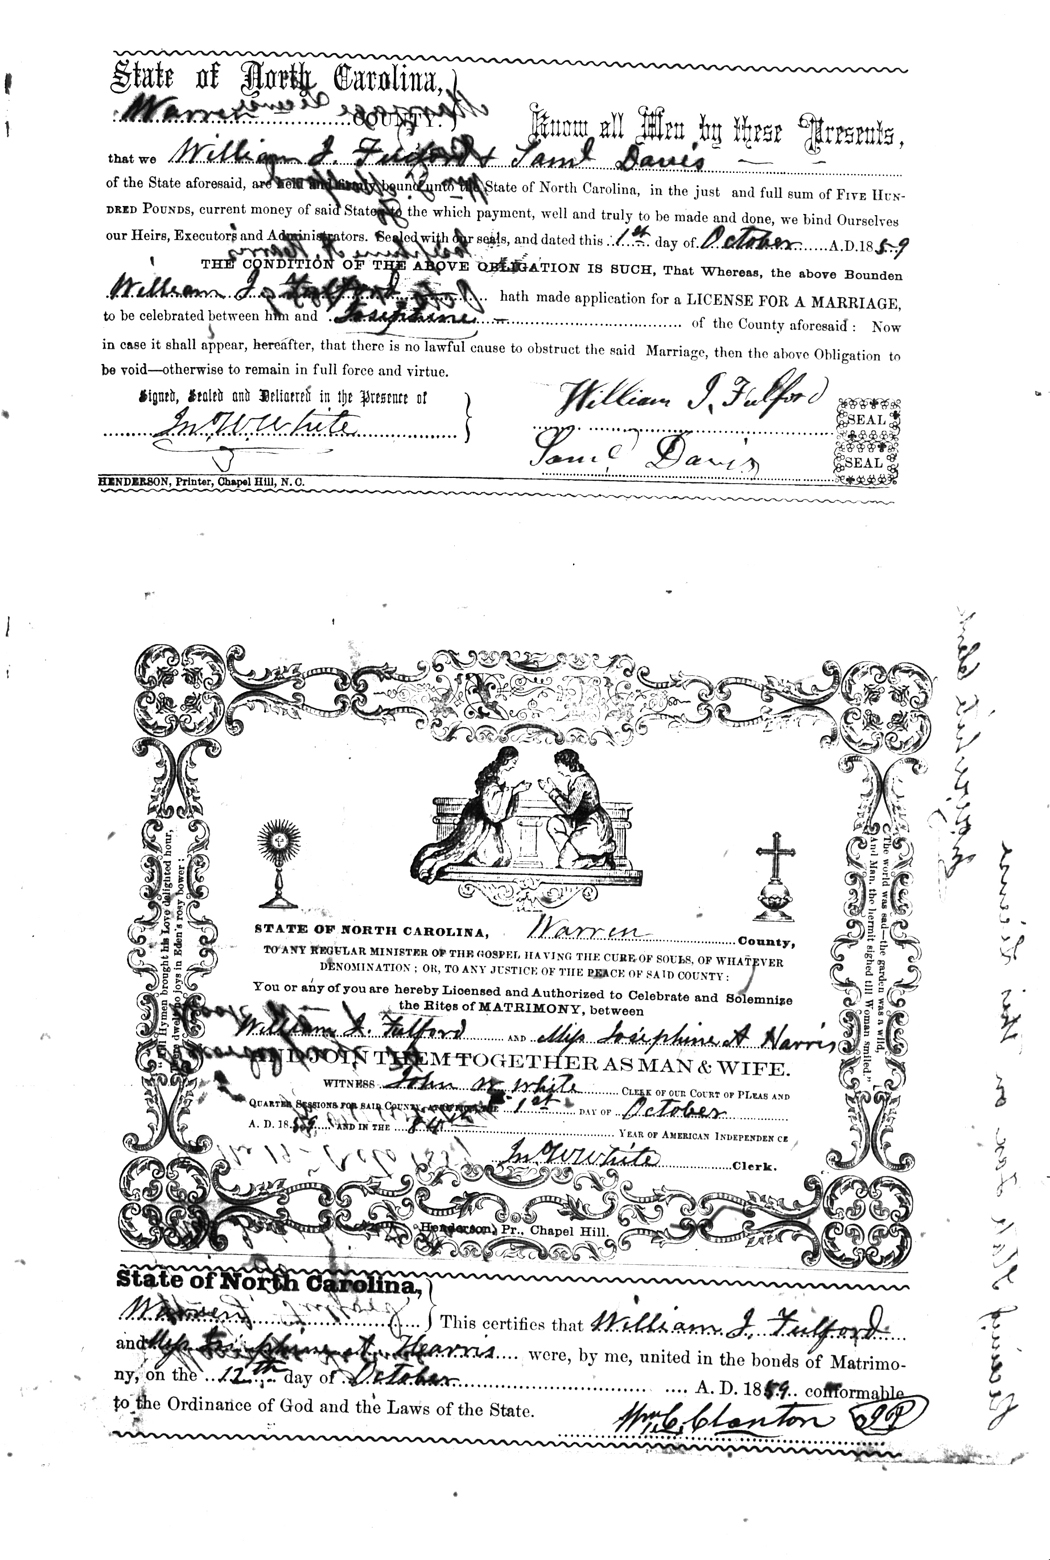 State of North Carolina,
Warren COUNTY.
Know all Men by these Presents,
that we William J. Fulford & Saml Davis
of the State aforesaid, are held and firmly bound unto the State of North Carolina, in the just and full sum of FIVE HUN-
DRED POUNDS, current money of said State to the which payment, well and truly to be made and done, we bind Ourselves
our Heirs, Executors and Administrators. Sealed with our seals, and dated this 1st day of October A.D. 1859
THE CONDITION OF THE ABOVE OBLIGATION IS SUCH, That Whereas, the above Bounden
William J. Fulford hath made application for a LICENSE FOR A MARRIAGE,
to be celebrated between him and Josephine of the County aforesaid: Now
in case it shall appear, hereafter, that there is no lawful cause to obstruct the said Marriage, then the above Obligation to
be void—otherwise to remain in full force and virtue.
Signed, Sealed and Delivered in the Presence of
William J. Fulford
SEAL
Jno. W. White
Saml Davis
SEAL
HENDERSON, Printer, Chapel Hill, N. C.
"Till Hymen brought his Love delighted hour,
There dwelt no joys in Eden's rosy bower:
The world was sad—the garden was a wild,
And Man, the hermit sighed till Woman smiled."
STATE OF NORTH CAROLINA, Warren County,
TO ANY REGULAR MINISTER OF THE GOSPEL HAVING THE CURE OF SOULS, OF WHATEVER
DENOMINATION; OR, TO ANY JUSTICE OF THE PEACE OF SAID COUNTY:
You or any of you are hereby Licensed and Authorized to Celebrate and Solemnize
the Rites of MATRIMONY, between
William J. Fulford AND Miss Josephine A Harris
AND JOIN THEM TOGETHER AS MAN & WIFE.
WITNESS John W White CLERK OF OUR COURT OF PLEAS AND
QUARTER SESSIONS FOR SAID COUNTY, AT OFFICE THE 1st DAY OF October
A. D. 1859 AND IN THE 84th YEAR OF AMERICAN INDEPENDENCE
Jno W White Clerk.
Henderson, Pr., Chapel Hill.
State of North Carolina,
Warren
This certifies that William J. Fulford
and Miss Josephine A. Harris were, by me, united in the bonds of Matrimo-
ny, on the 12th day of October A. D. 1859 conformable
to the Ordinance of God and the Laws of the State.
Wm. C. Clanton JP